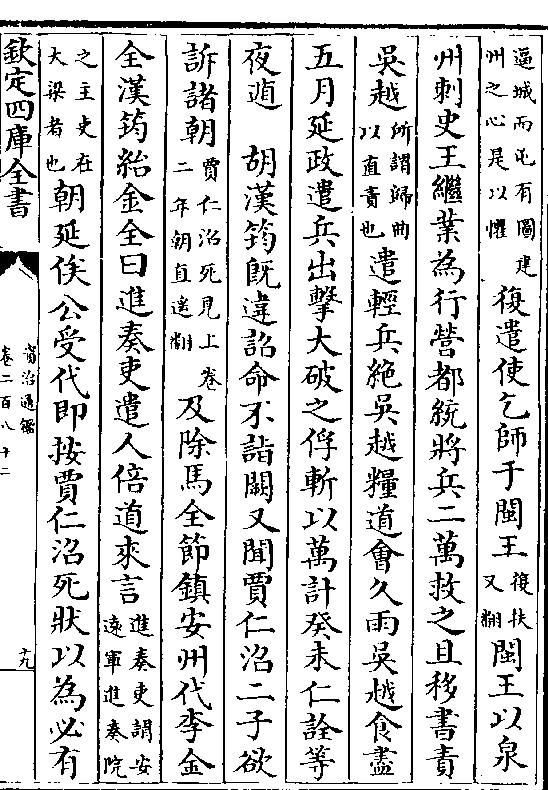 逼城而屯有圖建
州之心是以懼
復遣使乞師于閩王
復扶
又翻
閩王以泉
州刺史王繼業為行營都統將兵二萬救之且移書責
吳越
所謂歸曲
以直責也
遣輕兵絶吳越糧道會久雨吳越食盡
五月延政遣兵出擊大破之俘斬以萬計癸未仁詮等
夜遁　胡漢筠旣違詔命不詣闕又聞賈仁沼二子欲
訴諸朝
賈仁沼死見上卷
二年朝直遥翻
及除馬全節鎮安州代李金
全漢筠紿金全曰進奏吏遣人倍道來言
進奏吏謂安
遠軍進奏院
之主吏在
大梁者也
朝廷俟公受代即按賈仁沼死狀以為必有
欽定四庫全書
資治通鑑
卷二百八十二
十九